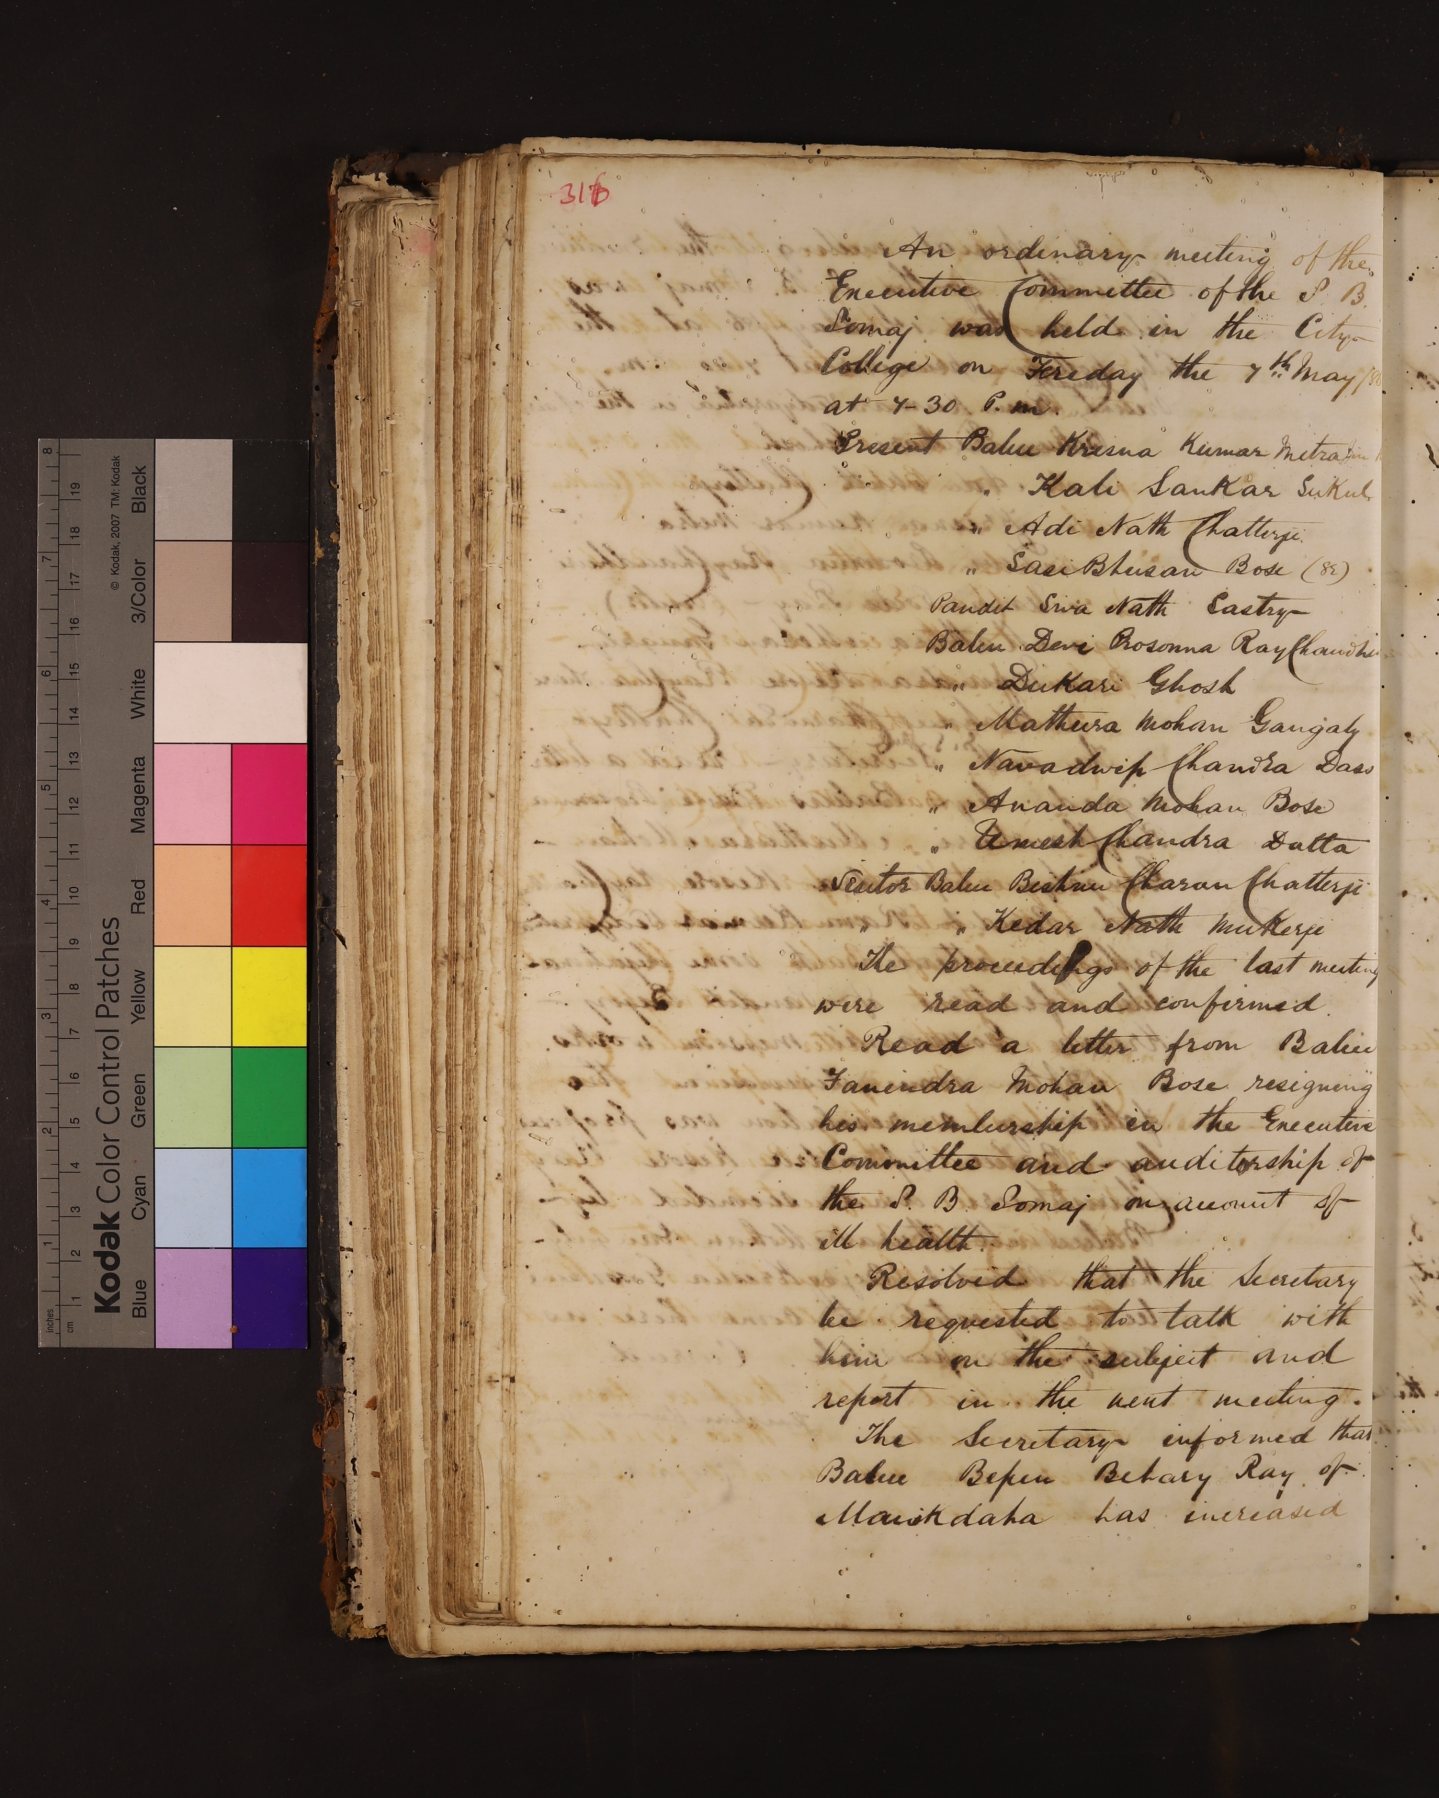 316
An ordinary meeting of the
Executive Committee of the S. B.
Somaj was held in the City
College on Fereday the 7th May
at 7-30 P. m.
Present Babu Krisna Kumar Mitra
" Kali Sankar Sukul
" Adi Nath Chatterji
" Sasi Bhusan Bose (82)
Pandit Siva Nath Sastry
Babu Devi Prosonna Ray Chaudhu
" Dukari Ghosh
" Mathura Mohan Gangaly
" Navadwip Chandra Dass
" Ananda Mohan Bose
" Umesh Chandra Datta
Visitor Babu Bishnu Charan Chatterji
" " Kedar Nath Mukerji
The proceedings of the last meeting
were read and confirmed.
Read a letter from Babu
Fanindra Mohan Bose resigning
his membership in the Executive
Committee and auditorship of
the S. B. Somaj on account of
ill health.
Resolved that the Secretary
be requested to talk with
him on the subject and
report in the next meeting.
The Secretary informed that
Babu Bepin Behary Ray of
Manikdaha has increased
Kodak Color Control Patches
© Kodak, 2007 TM: Kodak
Blue Cyan Green Yellow Red Magenta White 3/Color Black
inches 1 2 3 4 5 6 7 8
cm 1 2 3 4 5 6 7 8 9 10 11 12 13 14 15 16 17 18 19